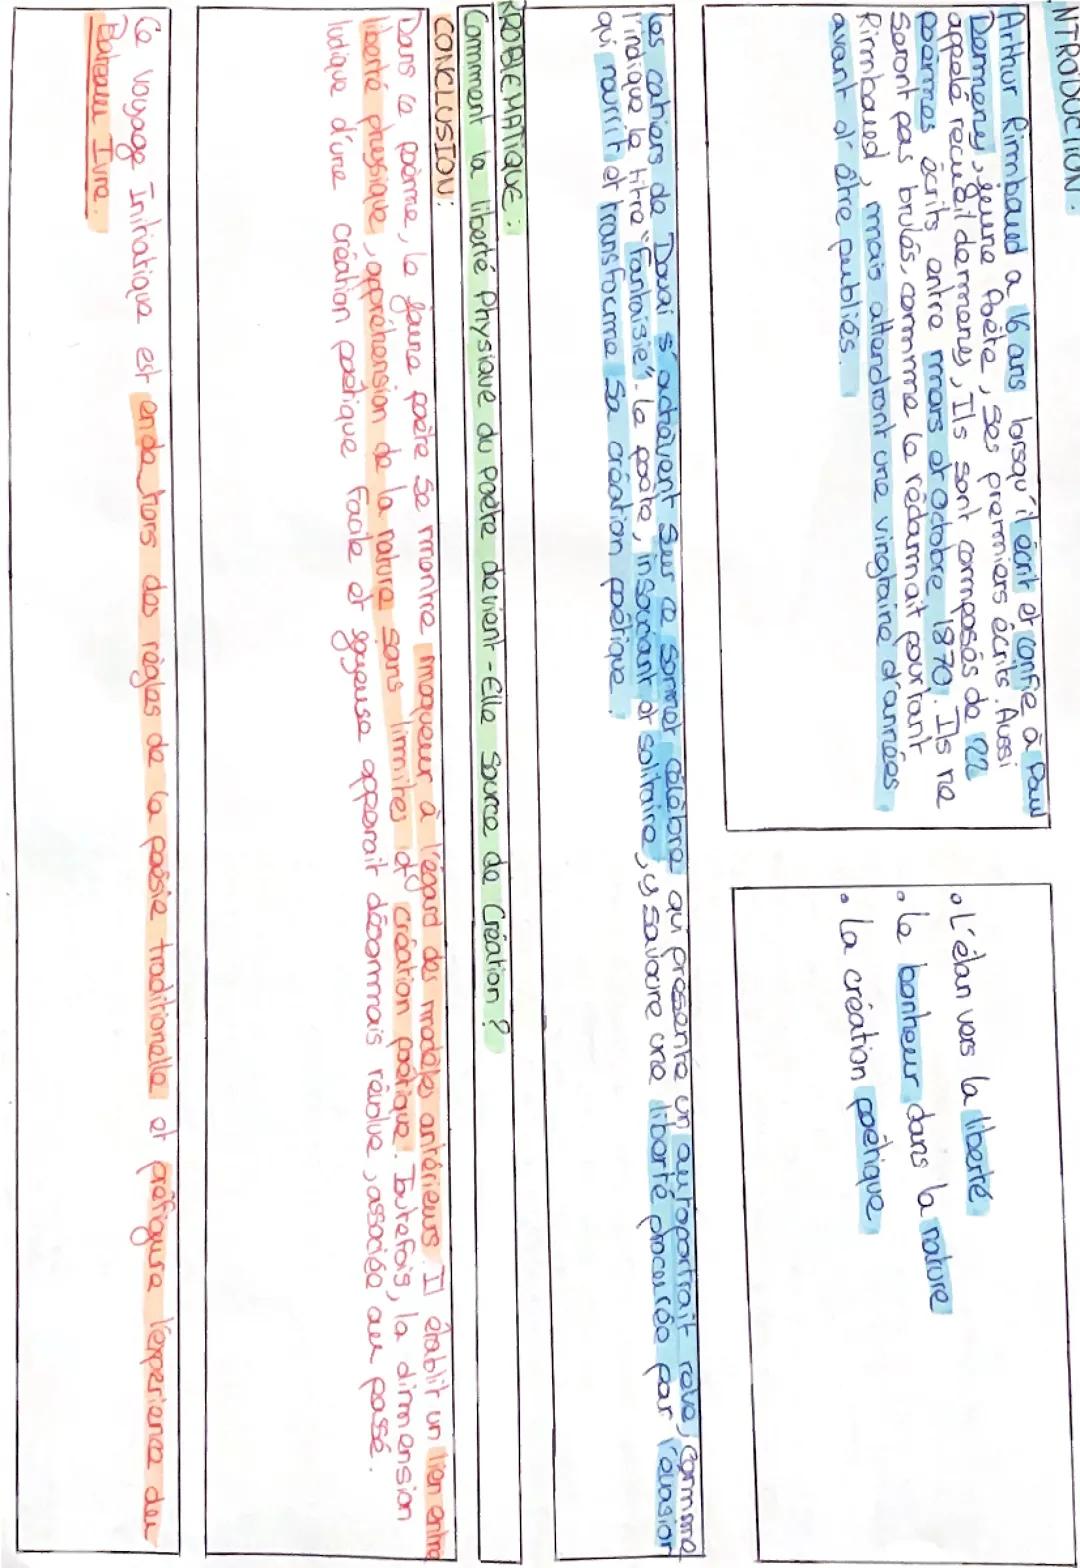 INTRODUCTION :
Arthur Rimbaud a 16 ans lorsqu'il écrit et confie à Paul
Demeny, jeune Poète, ses premiers écrits. Aussi
appelé recueil demmeny, Ils sont composés de 22
poèmes écrits entre mars et octobre 1870. Ils ne
Seront pas brulés, comme le rédamait pourtant
Rimbaud, mais attendront une vingtaine d'années
avant d'être publiés.
• L'élan vers la liberté
• Le bonheur dans la nature
• La création poétique
Les cahiers de Douai s'achèvent sur ce sonnet célèbre qui présente un autoportrait rêvé, comme
l'indique le titre "Fantaisie". Le poète, insouciant et solitaire, y savoure une liberté procurée par l'évasion
qui nourrit et transforme sa création poétique.
PROBLEMATIQUE :
Comment la liberté Physique du poète devient-Elle source de Création ?
CONCLUSION :
Dans ce poème, le jeune poète se montre moqueur à l'égard des modèles antérieurs. Il établit un lien entre
liberté physique, appréhension de la nature sans limites et création poétique. Toutefois, la dimension
ludique d'une création poétique facile et joyeuse apparait désormais révolue, associée au passé.
Ce voyage Initiatique est en dehors des règles de la poésie traditionelle et préfigure l'experience du
Bateau Ivre.